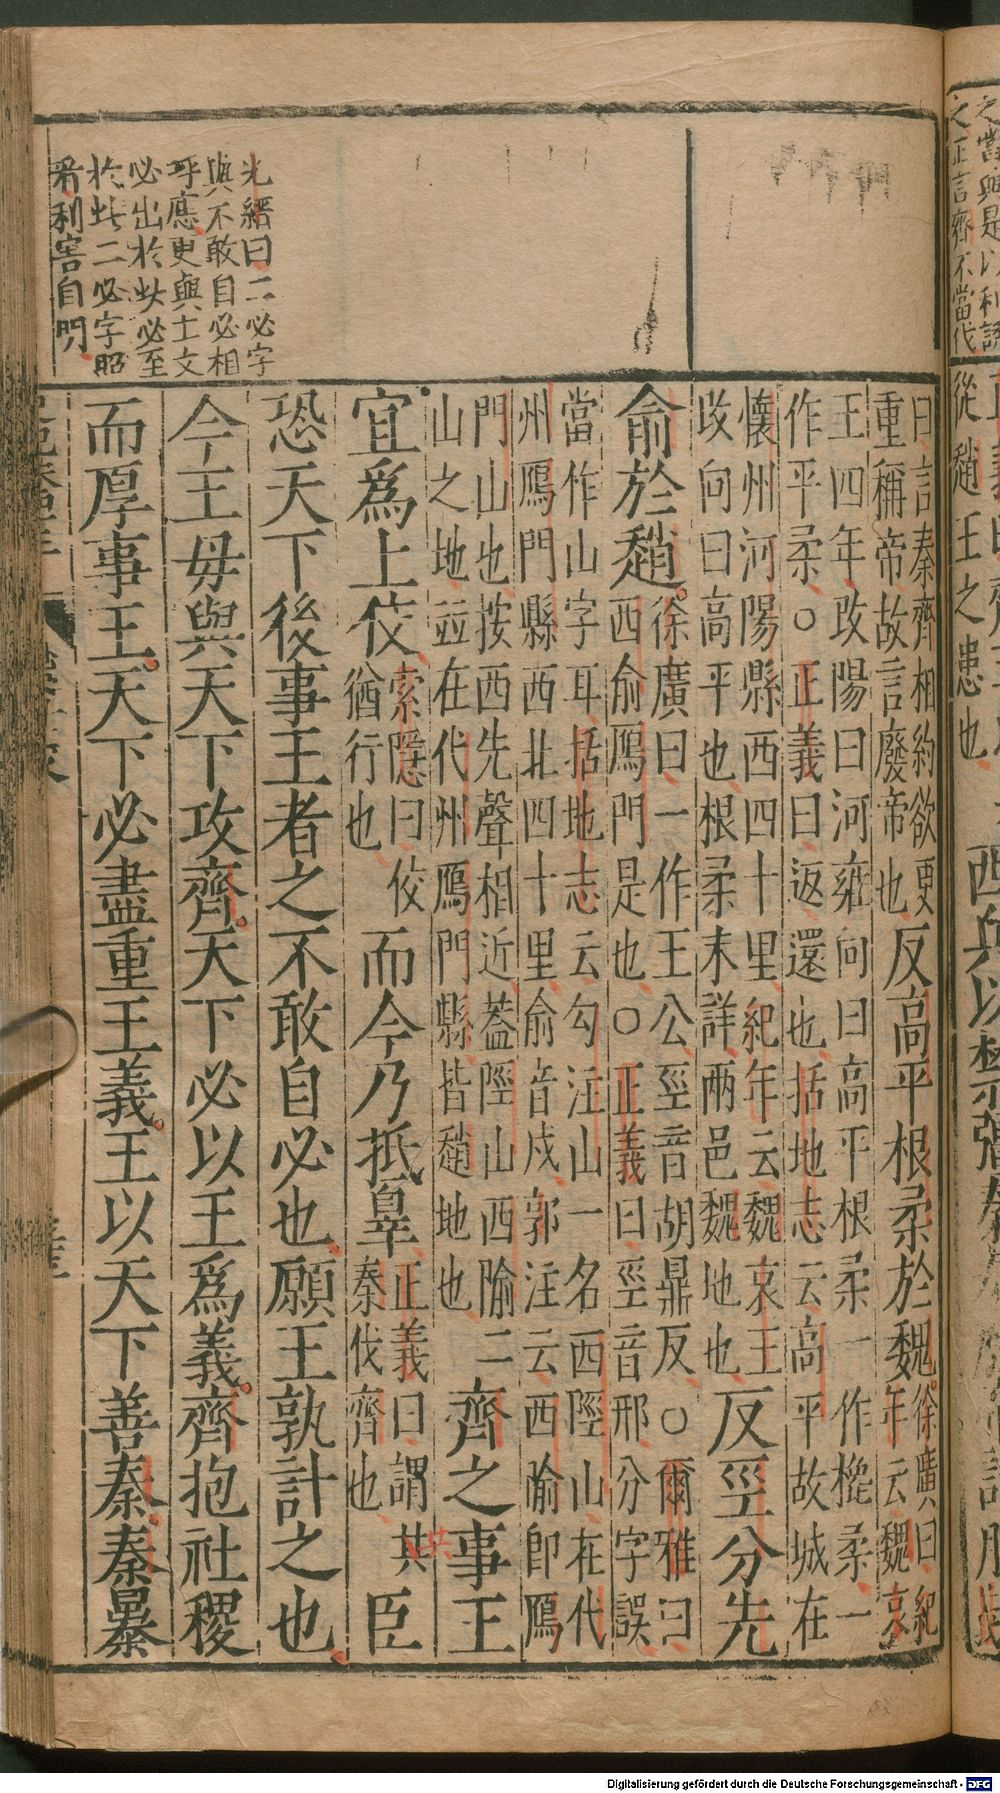 之當與是以利誘
之正言齊不當伐
從趙王之患也
光縉曰二必字
與不敢自必相
呼應更與士文
必出於此必至
於此二必字照
看利害自明
曰言秦齊相約欲更
重稱帝故言廢帝也反高平根柔於魏徐廣曰紀
年云魏哀
王四年改陽曰河雍向曰高平根柔一作槐柔一
作平柔○正義曰返還也括地志云高平故城在
懷州河陽縣西四十里紀年云魏哀王
改向曰高平也根柔未詳兩邑魏地也反巠分先
俞於趙徐廣曰一作王公巠音胡鼎反○爾雅曰
西俞鴈門是也○正義曰巠音邢分字誤
當作山字耳括地志云勾注山一名西陘山在代
州鴈門縣西北四十里俞音戍郭注云西隃卽鴈
門山也按西先聲相近蓋陘山西隃二
山之地竝在代州鴈門縣皆趙地也齊之事王
宜爲上佼索隱曰佼
猶行也而今乃抵辠正義曰謂
秦伐齊也其臣
恐天下後事王者之不敢自必也願王孰計之也
今王毋與天下攻齊天下必以王爲義齊抱社稷
而厚事王天下必盡重王義王以天下善秦秦暴
Digitalisierung gefördert durch die Deutsche Forschungsgemeinschaft - DFG